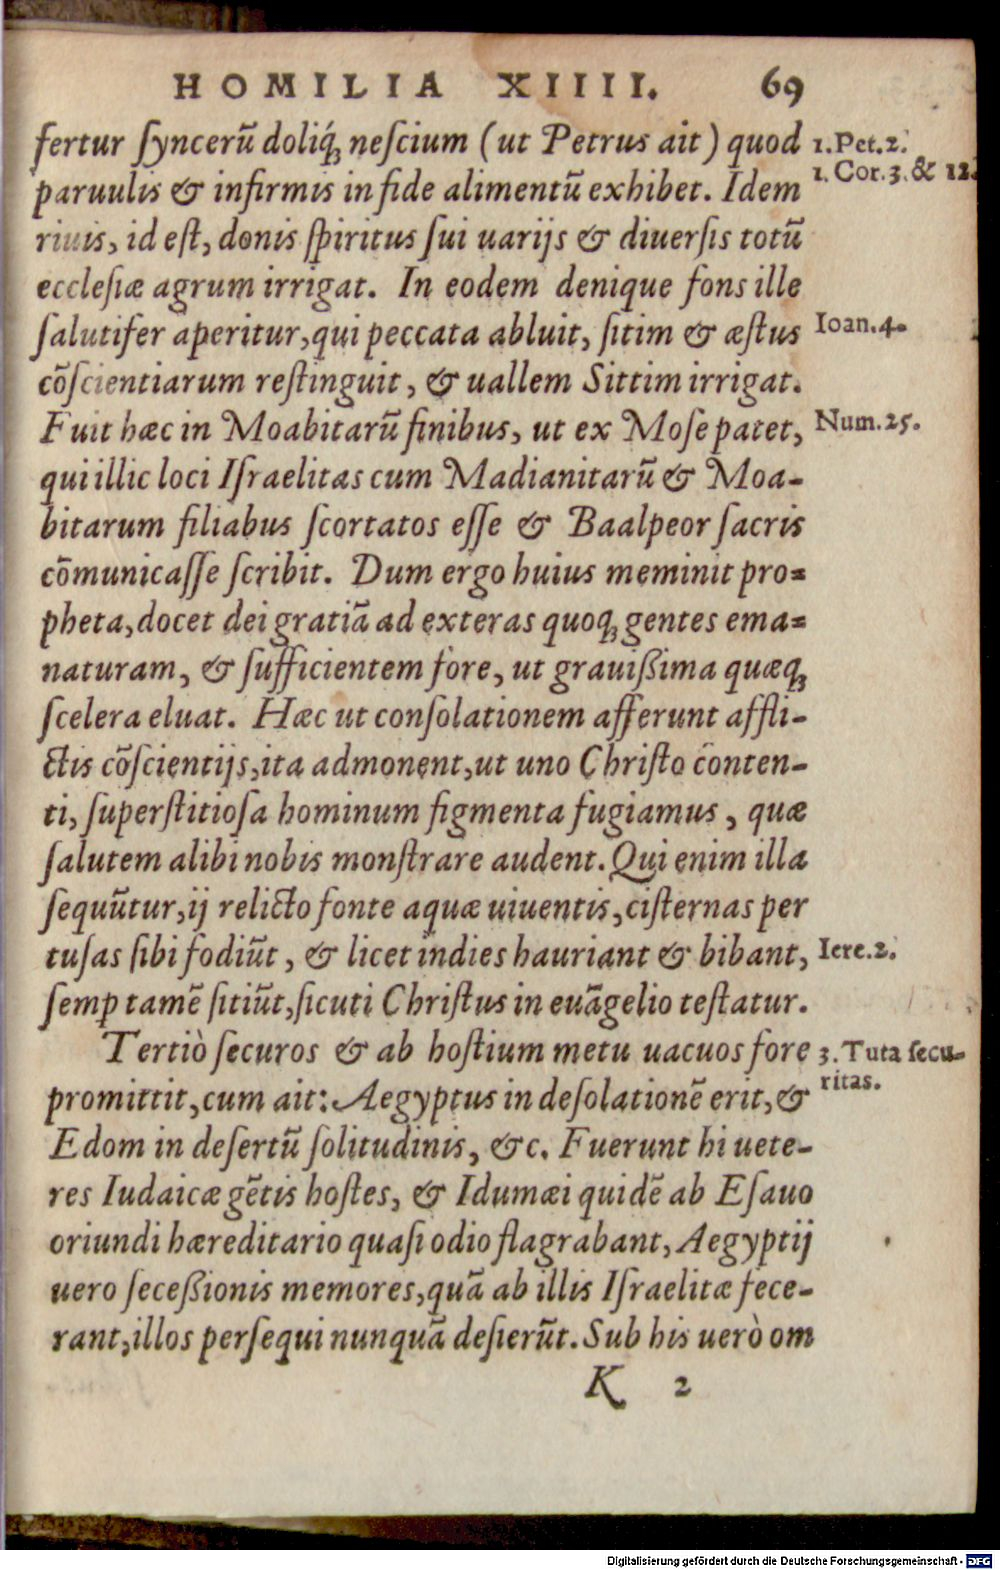 HOMILIA XIIII. 69
fertur ſyncerũ doliq́; neſcium (ut Petrus ait) quod 1.Pet.2.
paruulis & infirmis in fide alimentũ exhibet. Idem 1. Cor.3.& 12.
riuis, id eſt, donis ſpiritus ſui uarijs & diuerſis totũ
eccleſiæ agrum irrigat. In eodem denique fons ille
ſalutifer aperitur, qui peccata abluit, ſitim & æſtus Ioan.4.
cõſcientiarum reſtinguit, & uallem Sittim irrigat.
Fuit hæc in Moabitarũ finibus, ut ex Moſe patet, Num.25.
qui illic loci Iſraelitas cum Madianitarũ & Moa-
bitarum filiabus ſcortatos eſſe & Baalpeor ſacris
cõmunicaſſe ſcribit. Dum ergo huius meminit pro-
pheta, docet dei gratiã ad exteras quoq; gentes ema-
naturam, & ſufficientem fore, ut grauißima quæq;
ſcelera eluat. Hæc ut conſolationem afferunt affli-
ctis cõſcientijs, ita admonent, ut uno Chriſto conten-
ti, ſuperſtitioſa hominum figmenta fugiamus, quæ
ſalutem alibi nobis monſtrare audent. Qui enim illa
ſequũtur, ij relicto fonte aquæ uiuentis, ciſternas per
tuſas ſibi fodiũt, & licet indies hauriant & bibant, Iere.2.
ſemꝑ tamẽ ſitiũt, ſicuti Chriſtus in euãgelio teſtatur.
Tertiò ſecuros & ab hoſtium metu uacuos fore 3. Tuta ſecu-
promittit, cum ait: Aegyptus in deſolationẽ erit, & ritas.
Edom in deſertũ ſolitudinis, &c. Fuerunt hi uete-
res Iudaicæ gẽtis hoſtes, & Idumæi quidẽ ab Eſauo
oriundi hæreditario quaſi odio flagrabant, Aegyptij
uero ſeceßionis memores, quã ab illis Iſraelitæ fece-
rant, illos perſequi nunquã deſierũt. Sub his uerò om
K 2
Digitalisierung gefördert durch die Deutsche Forschungsgemeinschaft - DFG